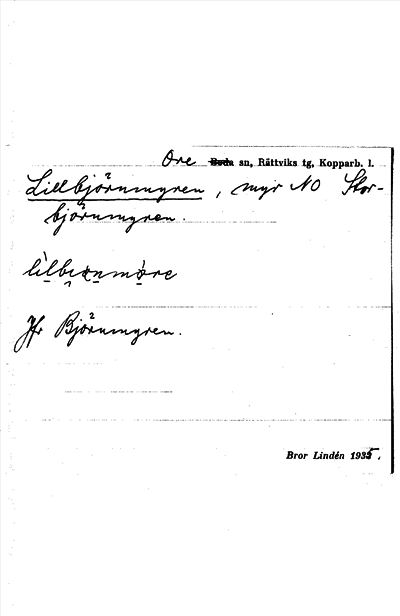 Ore sn, Rättviks tg, Kopparb. l.
Lillbjörnmyren, myr NO Stor-
björnmyren.
Jfr Björnmyren.
Bror Lindén 1935.